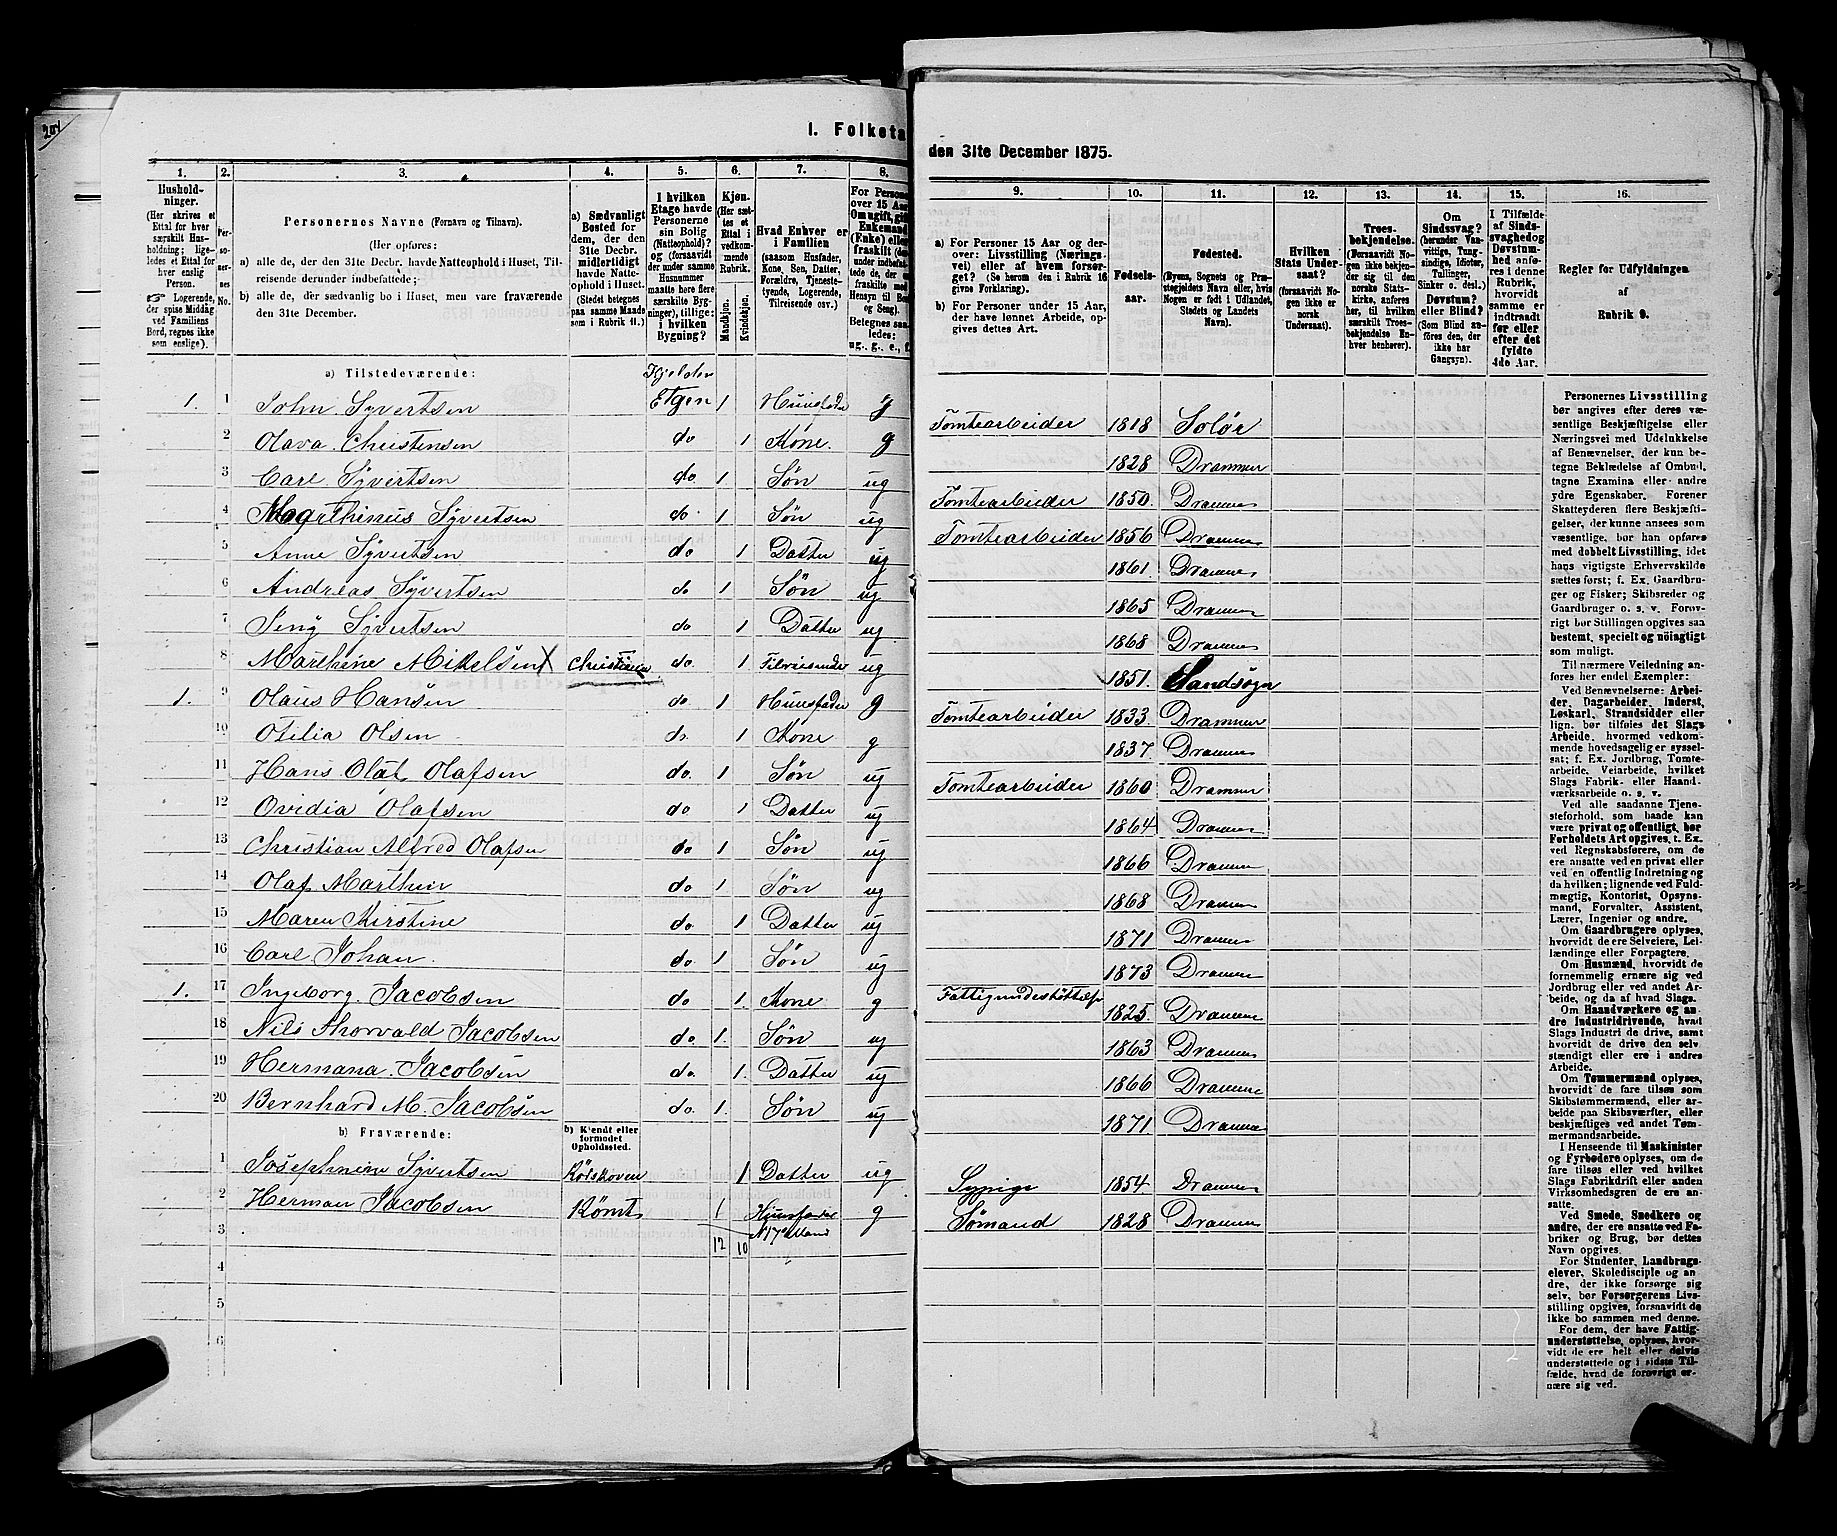 201
I. Folketa
den 31te December 1875.
1. 2. 3. 4. 5. 6. 7. 8.
9. 10. 11. 12. 13. 14. 15. 16.
Husholdninger.
(Her skrives et Ettal for hver særskilt Husholdning; ligeledes et Ettal for hver enslig Person.
☞ Logerende, der spise Middag ved Familiens Bord, regnes ikke som enslige).
Personernes No.
Personernes Navne (Fornavn og Tilnavn).
(Her opføres:
a) alle de, der den 31te Decbr. havde Natteophold i Huset, Tilreisende derunder indbefattede;
b) alle de, der sædvanlig bo i Huset, men vare fraværende den 31te December.
a) Sædvanligt Bosted for dem, der den 31te Decbr. midlertidigt havde Natteophold i Huset. (Stedet betegnes paa samme Maade som i Rubrik 11.)
I hvilken Etage havde Personerne sin Bolig (Natteophold)? (og forsaavidt der under samme Husnummer maatte høre flere særskilte Bygninger), tillige: i hvilken Bygning?
Kjøn. (Her sættes et Ettal i vedkommende Rubrik.
Mandkjøn. Kvindekjøn.
Hvad Enhver er i Familien
(saasom Husfader, Kone, Søn, Datter, Forældre, Tjenestetyende, Logerende, Tilreisende osv.)
For Persone over 15 Aar Om ugift, gift Enkemand (Enke) elle fraskilt
Betegnes saaledes: ug., g., e., f.
a) For Personer 15 Aar og derover: Livsstilling (Næringsvei) eller af hvem forsørget? (Se herom den i Rubrik 16 givne Forklaring).
b) For Personer under 15 Aar, der have lønnet Arbeide, opgives dettes Art.
Fødselsaar.
Fødested.
(Byens, Sognets og Præstegjeldets Navn eller, hvis Nogen er født i Udlandet, Stedets og Landets Navn).
Hvilken Stats Undersaat?
(forsaavidt Nogen ikke er norsk Undersaat).
Troesbekjendelse.
(Forsaavidt Nogen ikke bekjender sig til den norske Statskirke, anføres her, til hvilken særskilt Troesbekjendelse Enhver henhører).
Om Sindssvag? (herunder Vanvittige, Tungsindige, Idioter, Tullinger, Sinker o. desl.) Døvstum? eller Blind? (Som Blind anføres den, der ikke har Gangsyn).
I Tilfælde af Sindssvaghed og Døvstumhed anføres i denne Rubrik, hvorvidt samme er indtraadt før eller efter det fyldte 4de Aar.
Regler for Udfyldningen af Rubrik 9.
a) Tilstedeværende:
1. 1 John Syvertsen Kjelder Etgen 1 Huusfader g Tomtearbeider 1818 Solør
2 Olava Christensen do 1 Kone. g 1828 Drammen
3 Carl Syvertsen do 1 Søn ug Tomtearbeider 1850. Drammen
4 Marthinus Syvertsen do 1 Søn ug Tomtearbeider 1856 Drammen
5 Anne Syvertsen do 1 Datter ug 1861. Drammen
6 Andreas Syvertsen do 1 Søn ug 1865 Drammen
7 Jeny Syvertsen do 1 Datter ug 1868 Drammen
8 Marthine Mikelsen X Christiania do. 1 Tilreisende ug 1851. Sandsogn
1. 9 Olaus Hansen do 1 Huusfader g Tomtearbeider 1833. Drammen
10 Otilia Olsen do. 1 Kone g 1837 Drammen
11 Hans Olaf Olafsen do. 1 Søn ug Tomtearbeider 1860 Drammen
12 Ovidia Olafsen do 1 Datter ug 1864 Drammen
13 Christian Alfred Olafsen do 1 Søn ug 1866 Drammen
14 Olaf Marthin do 1 Søn ug 1868 Drammen
15 Maren Kirstine do. 1 Datter ug 1871 Drammen
16 Carl Johan. do. 1 Søn ug 1873 Drammen
1. 17 Ingeborg. Jacobsen do 1. Kone g Fattigunderstøttelse 1825. Drammen
18 Nils Thorvald Jacobsen do. 1. Søn ug 1863 Drammen
19 Hermana. Jacobsen do. 1. Datter ug 1866 Drammen
20 Bernhard M. Jacobsen do. 1. Søn ug 1871 Drammen
b) Fraværende:
b) Kjendt eller formodet Opholdssted.
1 Josephine Syvertsen Rødskoven 1 Datter ug Sypige 1854 Drammen
2 Herman Jacobsen 1 Huusfader g Sømand 1828 Drammen
3 12 10
4
5
6
Personernes Livsstilling bør angives efter deres væsentlige Beskjæftigelse eller Næringsvei med Udelukkelse af Benævnelser, der kun betegne Beklædelse af Ombud, tagne Examina eller andre ydre Egenskaber. Forener Skatteyderen flere Beskjæftigelser, der kunne ansees som væsentlige, bør han opføres med dobbelt Livsstilling, idet hans vigtigste Erhvervskilde sættes først; f. Ex. Gaardbruger og Fisker; Skibsreder og Gaardbruger o. s. v. Forøvrigt bør Stillingen opgives saa bestemt, specielt og nøiagtigt som muligt.
Til nærmere Veiledning anføres her endel Exempler:
Ved Benævnelserne: Arbeider, Dagarbeider, Inderst, Løskarl, Strandsidder eller lign. bør tilføies det Slags Arbeide, hvormed vedkommende hovedsagelig er sysselsat; f. Ex. Jordbrug, Tomtearbeide, Veiarbeide, hvilket Slags Fabrik- eller Haandværksarbeide o. s. v.
Ved alle saadanne Tjenesteforhold, som baade kan være privat og offentligt, bør Forholdets Art opgives, t. Ex. ved Regnskabsførere, om de ere ansatte ved en privat eller en offentlig Indretning og da hvilken; lignende ved Fuldmægtig, Kontorist, Opsynsmand, Forvalter, Assistent, Lærer, Ingeniør og andre.
Om Gaardbrugere oplyses, hvorvidt de ere Selveiere, Leilændinge eller Forpagtere.
Om Husmænd, hvorvidt de fornemmelig ernære sig ved Jordbrug eller ved andet Arbeide, og da af hvad Slags.
Om Haandværkere og andre Industridrivende, hvad Slags Industri de drive, samt hvorvidt de drive den selvstændigt eller ere i andres Arbeide.
Om Tømmermænd oplyses, hvorvidt de fare tilsøs som Skibstømmermænd, eller arbeide paa Skibsværfter, eller beskjæftiges ved andet Tømmermandsarbeide.
I Henseende til Maskinister og Fyrbødere oplyses, om de fare tilsøs eller ved hvilket Slags Fabrikdrift eller anden Virksomhed de ere ansatte.
Ved Smede, Snedkere og andre, der ere ansatte ved Fabriker og Brug, bør dettes Navn opgives.
For Studenter, Landbrugselever, Skoledisciple og andre, der ikke forsørge sig selv, bør Forsørgerens Livsstilling opgives, forsaavidt de ikke bo sammen med denne.
For dem, der have Fattigunderstøttelse, oplyses, hvorvidt de ere helt eller delvis understøttede og i sidste Tilfælde, hvad de forøvrigt ernære sig ved.